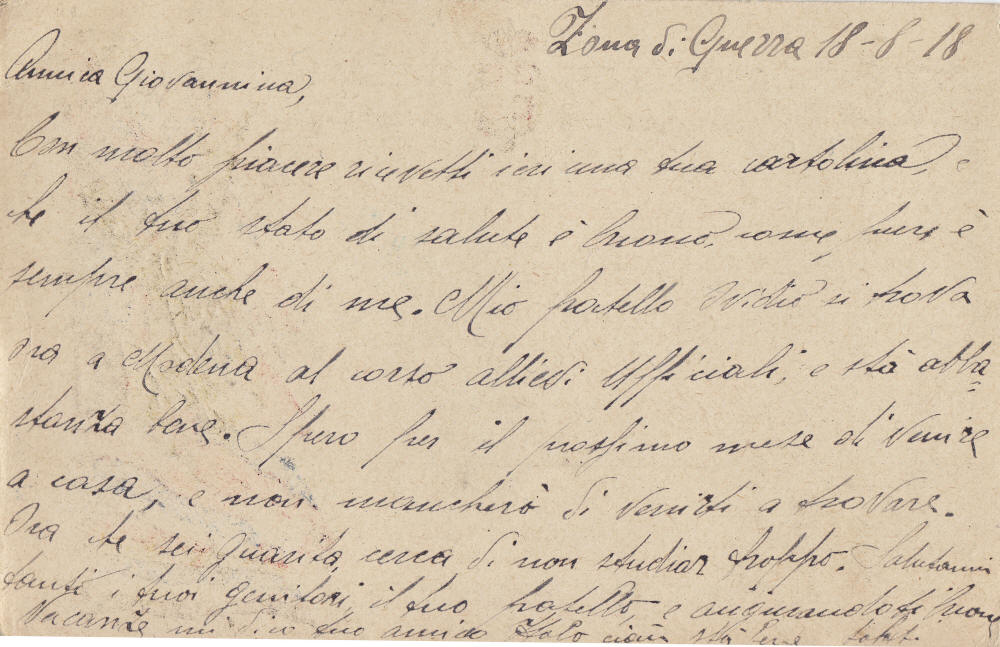 Zona di Guerra 18-8-18
Amica Giovannina,
Con molto piacere ricevetti ieri una tua cartolina, e
che il tuo stato di salute è buono, come pure è
sempre anche di me. Mio fratello Ovidio si trova
ora a Modena al corso allievi Ufficiali, e stà abba-
stanza bene. Spero per il prossimo mese di venire
a casa, e non mancherò di venirti a trovare.
Ora che sei guarita, cerca di non studiar troppo. Salutami
tanti i tuoi genitori, il tuo fratello, e augurandoti buone
Vacanze mi dico tuo amico Italo ciau stà bene